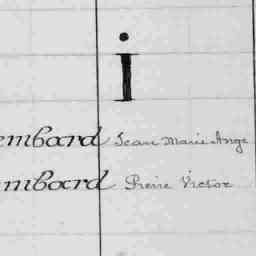 i
embard Jean Marie Ange
mbard Pierre Victor